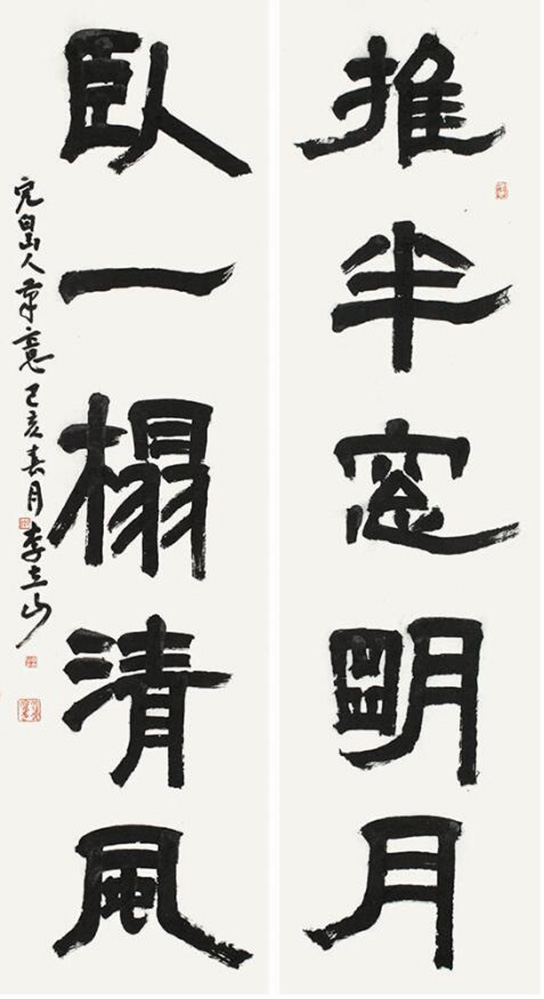 推半窓明月
臥一榻清風
完白山人筆意己亥春月李立山